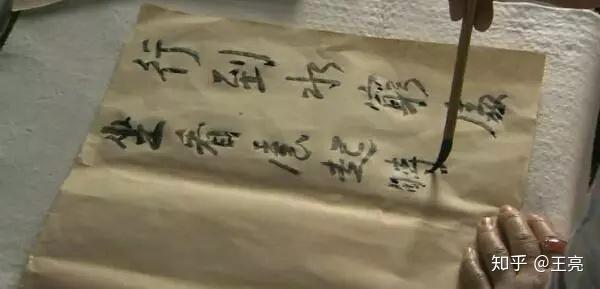 行到水窮處
坐看雲起時
知乎 @王亮